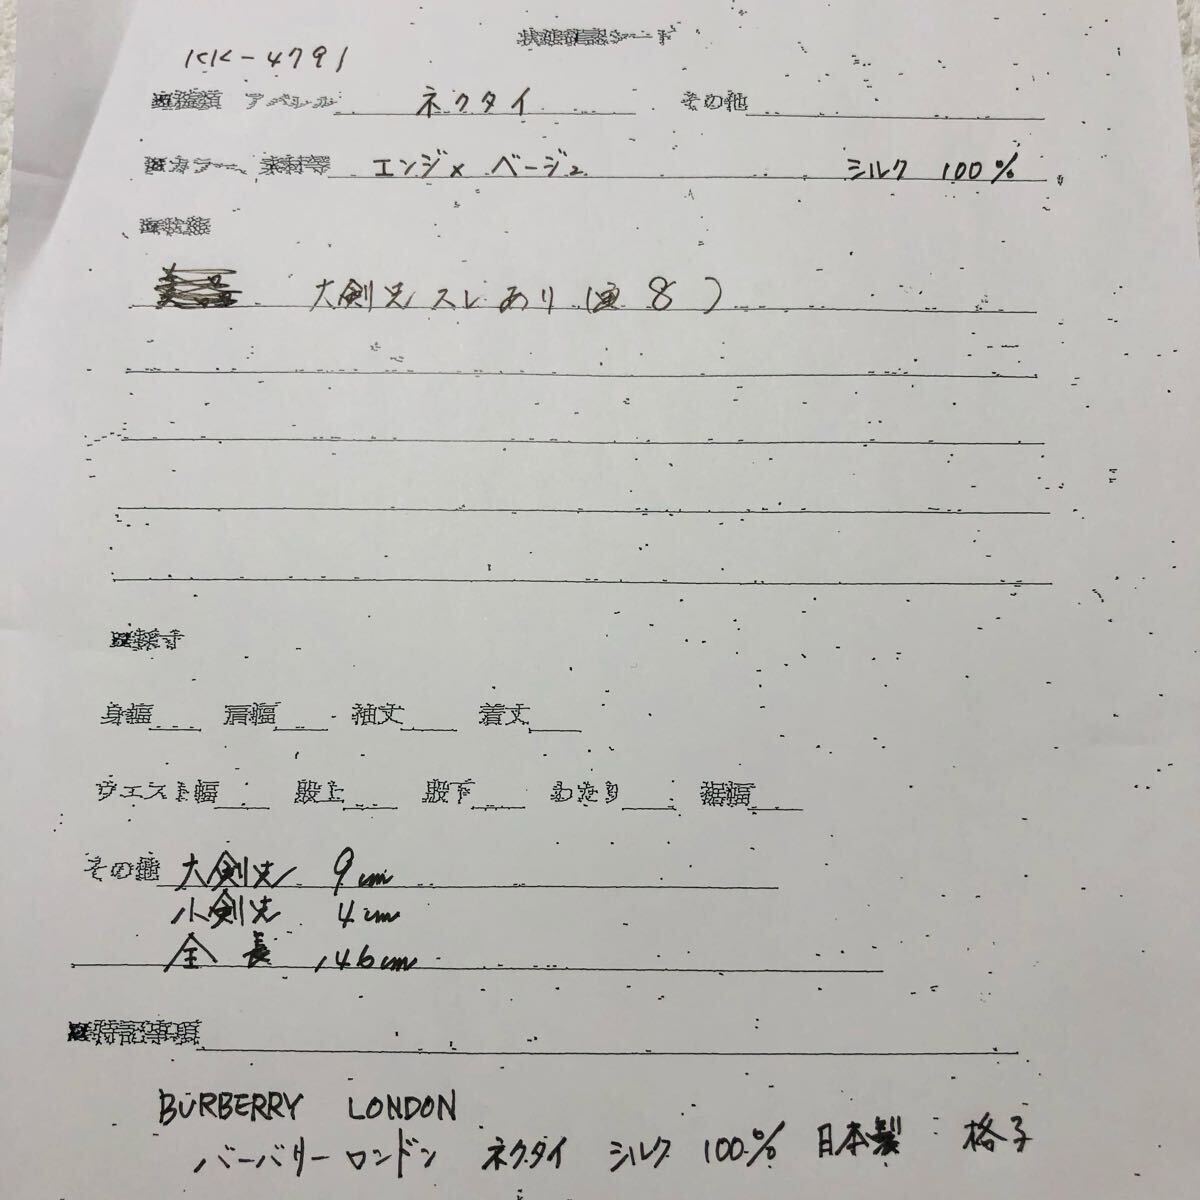 状態確認シート
KK-4791
■種類 アパレル ネクタイ その他
■カラー、素材等 エンジ× ベージュ シルク 100%
■状態
美品 大剣先スレあり(画 8 )
■採寸
身幅 肩幅 袖丈 着丈
ウエスト幅 股上 股下 わたり 裾幅
その他 大剣先 9cm
小剣先 4cm
全長 146cm
■特記事項
BURBERRY LONDON
バーバリーロンドン ネクタイ シルク 100% 日本製 格子